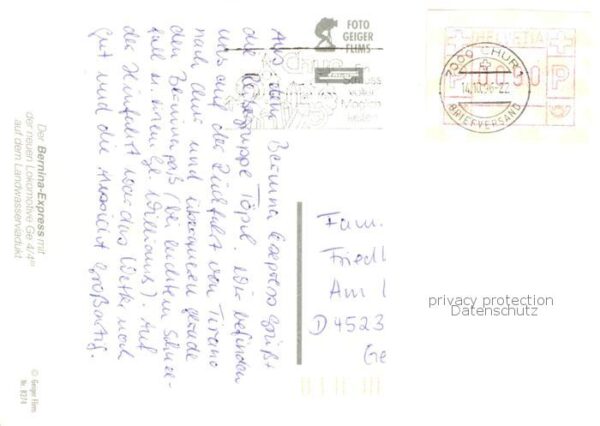 Aus dem Bernina Express grüßt
die Reisegruppe Töpel. Wir befinden
uns auf der Rückfahrt von Tirano
nach Chur und überqueren gerade
den Berninapaß (bei leichtem Schnee-
fall u. einem Gl. Williams). Auf
der Hinfahrt war das Wetter noch
gut und die Aussicht großartig.
Der Bernina-Express mit
der neuen Lokomotive Ge 4/4 III
auf dem Landwasserviadukt
© Geiger Flims
Nr. 8374
FOTO
GEIGER
FLIMS
Chur
Ein
Genuss
voller
Möglich
keiten
HELVETIA
0090 P
7009 CHUR 1
14.10.96-22
BRIEFVERSAND
Fam.
Friedl
Am
D 4523
Ge
privacy protection
Datenschutz